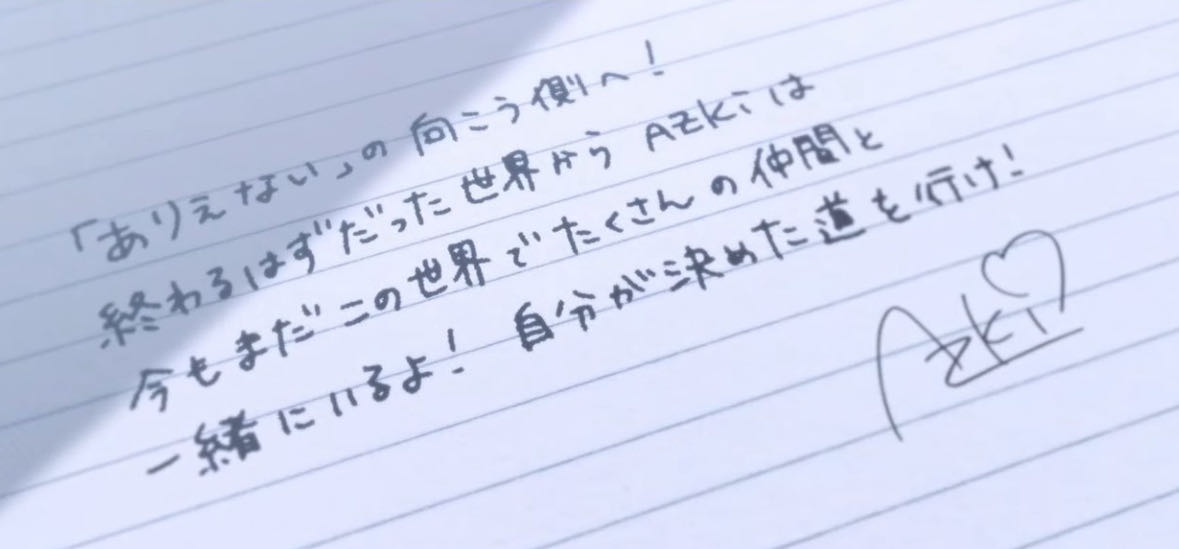 「ありえない」の向こう側へ!
終わるはずだった世界から AZKiは
今もまだこの世界でたくさんの仲間と
一緒にいるよ! 自分が決めた道を行け!
AZKi